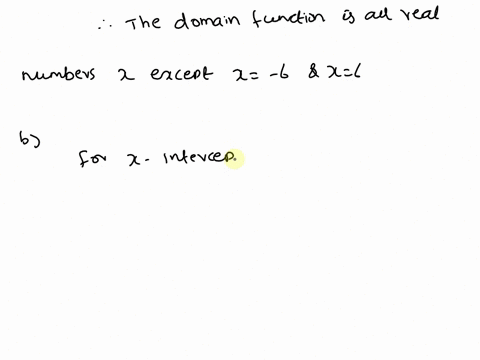 ∴ The domain function is all real
numbers x except x= -6 & x=6
b)
for x- intercep